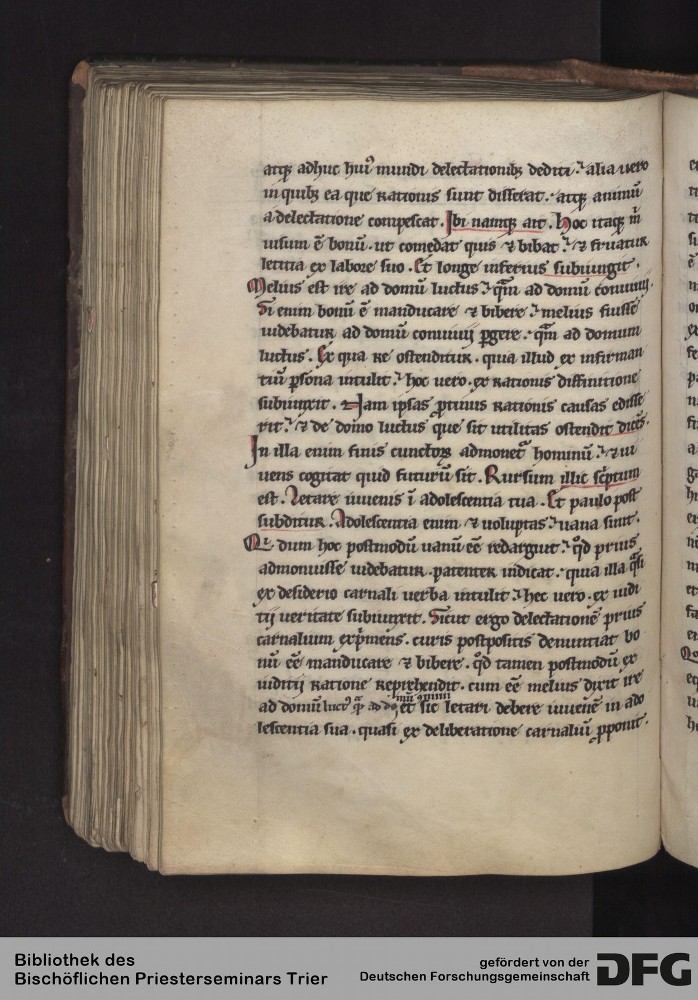 atq; adhuc hui᷒ mundi delectationib; dediti ⁊ alia uero
in quib; ea que rationis sunt disserat . atq; animū
a delectatione compescat . Ibi namq; ait . Hoc itaq; m̄
uisum ē bonū . ut comedat quis ⁊ bibat ⁊ fruatur
letitia ex labore suo . Et longe inferius subiungit .
Melius est ire ad domū luctus qͣm ad domū conuiuij .
Si enim bonū ē manducare ⁊ bibere melius fuisse
uidebatur ad domū conuiuij ꝑgere . qͣm ad domum
luctus . Ex qua re ostenditur . qua illud ex infirman
tiū ꝑsona intulit hoc uero . ex rationis diffinitione
subiunxit . Nam ipsas ꝓtinus rationis causas edisse
rit ⁊ de domo luctus que sit utilitas ostendit dicēs .
In illa enim finis cunctoꝝ admonetᷣ hominū ⁊ ui
uens cogitat quid futurū sit . Rursum illic scͥptum
est . Letare iuuenis ī adolescentia tua . Et paulo post
subditur . Adolescentia enim ⁊ uoluptas uana sunt .
Qui dum hoc postmodū uanū eē redarguit qd̓ prius
admonuisse uidebatur . patenter indicat . quia illa qͣsi
ex desiderio carnali uerba intulit hec uero . ex iudi
tij ueritate subiunxit . Sicut ergo delectationē prius
carnalium exp̱mens . curis postpositis denuntiat bo
nū eē manducare ⁊ bibere . qd̓ tamen postmodū ex
iuditij ratione reprehendit . cum eē melius dixit ire
ad domū luct᷒ qͣ ad domū conuiuii
et sic letari debere iuuenē in ado
lescentia sua . quasi ex deliberatione carnaliū ꝓponit .
Bibliothek des
Bischöflichen Priesterseminars Trier
gefördert von der
Deutschen Forschungsgemeinschaft
DFG